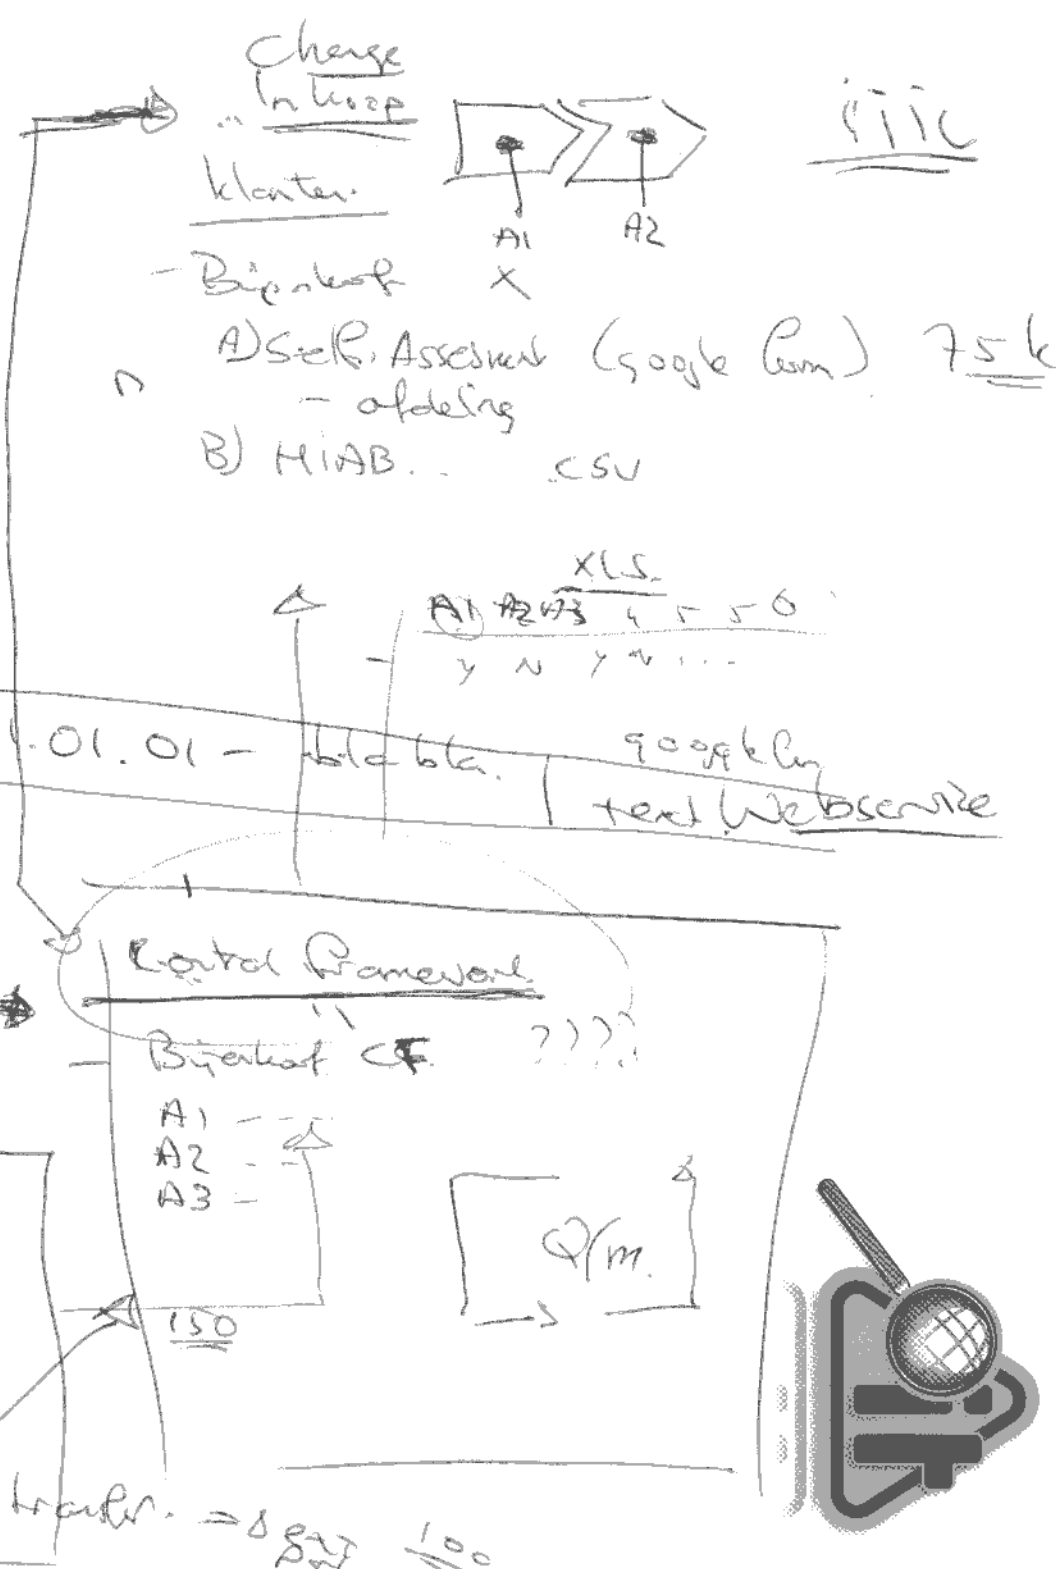 Change
Inkoop
klanten
A1 A2
- Bijenkorf X
A) Self Assesment (google form) 75k
- afdeling
B) MiAB... .CSV
XLS.
A1 A2 A3 4 5 5 6
Y N Y N ...
.01.01 - bla bla. google
text Webservice
Control Framework
Bijenkorf CF. ????
A1 - - -
A2 - -
A3 -
Q/m.
150
transfer. ⇒ 100